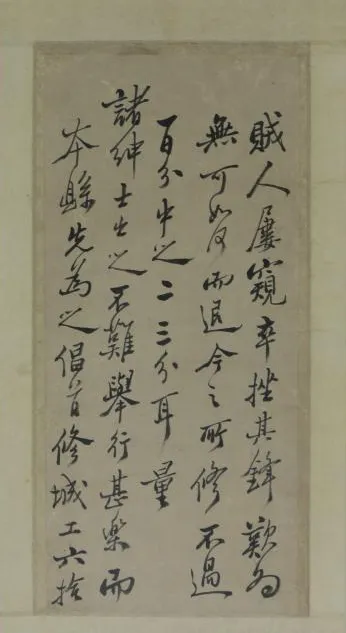 賊人屢窺卒挫其鋒歎為
無可如何而退今之所修不過
百分中之二三分耳量
諸紳士出之不難舉行甚樂而
本縣先為之倡首修城工六拾